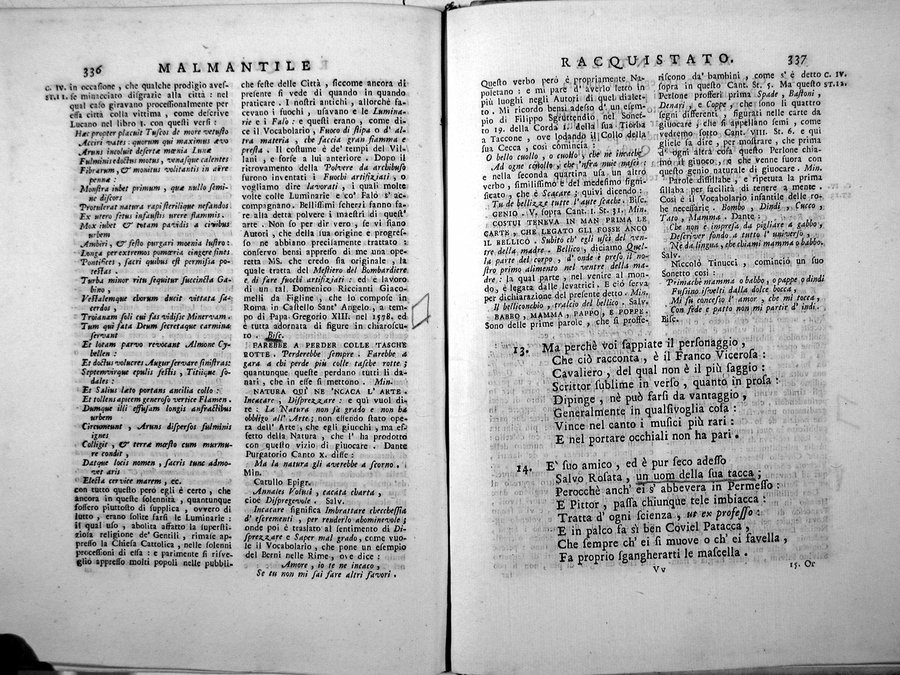 336 MALMANTILE
C. IV. in occasione, che qualche prodigio aves-
ST. 11. se minacciato disgrazie alla città: nel
qual caso giravano processionalmente per
essa città colla vittima, come descrive
Lucano nel libro I. con questi versi:
Hæc propter placuit Tuscos de more vetusto
Acciri vates: quorum qui maximus ævo
Aruns incoluit desertæ mœnia Lunæ
Fulminis edoctus motus, venasque calentes
Fibrarum, & monitus volitantis in aere
pennæ:
Monstra iubet primum, quæ nullo semi-
ne discors
Protulerat natura rapi: sterilique nefandos
Ex utero fetus infaustis urere flammis.
Mox iubet & totam pavidis a civibus
urbem
Ambiri, & festo purgari mœnia lustro:
Longa per extremos pomœria cingere fines
Pontifices, sacri quibus est permissa po-
testas.
Turba minor ritu sequitur succincta Ga-
bino,
Vestalemque chorum ducit vittata sa-
cerdos,
Troianam soli cui fas vidisse Minervam.
Tum qui fata Deum secretaque carmina
servant
Et lotam parvo revocant Almone Cy-
bellen:
Et doctus volucres Augur servare sinistras:
Septemvirque epulis festis, Titiique So-
dales:
Et Salius læto portans ancilia collo:
Et tollens apicem generoso vertice Flamen.
Dumque illi effusam longis anfractibus
urbem
Circumeunt, Aruns dispersos fulminis
ignes
Colligit, & terræ mœsto cum murmu-
re condit,
Datque locis nomen, sacris tunc admo-
vet aris
Electa cervice marem, ec.
con tutto questo però egli è certo, che
ancora in queste solennità, quantunque
fossero piuttosto di supplica, ovvero di
lutto, erano solite farsi le Luminarie:
il qual uso, abolita affatto la supersti-
ziosa religione de' Gentili, rimase ap-
presso la Chiesa Cattolica, nelle solenni
processioni di essa: e parimente si risve-
gliò appresso molti popoli nelle pubbli-
che feste delle Città, siccome ancora di
presente si vede di quando in quando
praticare. I nostri antichi, allorchè fa-
cevano i fuochi, usavano e le Lumina-
rie e i Falò: e questi erano, come di-
ce il Vocabolario, Fuoco di stipa o d' al-
tra materia, che faccia gran fiamma e
presta. Il costume è de' tempi de' Vil-
lani, e forse a lui anteriore. Dopo il
ritrovamento della Polvere da archibuso
furono inventati i Fuochi artifiziati, o
vogliamo dire lavorati, i quali molte
volte colle Luminarie e co' Falò s' ac-
compagnano. Bellissimi scherzi fanno fa-
re alla detta polvere i maestri di quest'
arte. Non so per dir vero, se vi siano
Autori, che della sua origine e progres-
so ne abbiano precisamente trattato:
conservo bensì appresso di me una ope-
retta MS. che credo sia originale, la
quale tratta del Mestiero del Bombardiere
e di fare fuochi artifiziati: ed è lavoro
di un tal Domenico Ricciani Giaco-
melli da Figline, che lo compose in
Roma in Castello Sant' Angelo, a tem-
po di Papa Gregorio XIII. nel 1578. ed
è tutta adornata di figure in chiaroscu-
to. Bisc.
FAREBBE A PERDER COLLE TASCHE
ROTTE. Perderebbe sempre. Farebbe a
gara a chi perde più colle tasche rotte:
quantunque queste perdano tutti li da-
nari, che in esse si mettono. Min.
NATURA QUI NE 'NCACA L' ARTE.
Incacare, Disprezzare: e quì vuol di-
re: La Natura non sa grado e non ha
obbligo all' Arte; non essendo stato ope-
ra dell' Arte, che egli giuochi, ma ef-
fetto della Natura, che l' ha prodotto
con questo vizio di giuocare. Dante
Purgatorio Canto X. disse:
Ma la natura gli averebbe a scorno.
Min.
Catullo Epigr.
Annales Volusi, cacata charta,
cioè Dispregevole. Salv.
Incacare significa Imbrattare checchessia
d' escrementi, per renderlo abominevole;
onde poi è traslato al sentimento di Di-
sprezzare e Saper mal grado, come vuo-
le il Vocabolario, che pone un esempio
del Berni nelle Rime, ove dice:
Amore, io te ne incaco,
Se tu non mi sai fare altri favori.
RACQUISTATO. 337
Questo verbo però è propriamente Na-
poletano: e mi pare d' averlo letto in
più luoghi negli Autori di quel dialet-
to. Mi ricordo bensì adesso d' un esem-
pio di Filippo Sgruttendio nel Sonet-
to 19. della Corda I. della sua Tiorba
a Taccone, ove lodando il Collo della
sua Cecca, così comincia:
O bello cuollo, o cuollo, che ne incache
Ad ogne cuollo, che 'nfra nuie medimmo
e nella seconda quartina usa un altro
verbo, similissimo e del medesimo signi-
ficato, che è Scacare; quivi dicendo:
Tu de bellizze tutte l' aute scache. Bisc.
GENIO. V. sopra Cant. I. St. 31. Min.
COSTUI TENEVA IN MAN PRIMA LE
CARTE, CHE LEGATO GLI FOSSE ANCO
IL BELLICO. Subito ch' egli uscì del ven-
tre della madre. Bellico, diciamo Quel-
la parte del corpo, d' onde è preso il no-
stro primo alimento nel ventre della ma-
dre: la qual parte, nel venire al mon-
do, è legata dalle levatrici. E ciò serva
per dichiarazione del presente detto. Min.
Il belliconchio, tralcio del bellico. Salv.
BABBO, MAMMA, PAPPO, E POPPE.
Sono delle prime parole, che si proffe-
riscono da' bambini, come s' è detto C. IV.
sopra in questo Cant. St. 5. Ma questo ST. 12.
Perlone profferì prima Spade, Bastoni,
Denari, e Coppe, che sono li quattro
segni differenti, figurati nelle carte da
giuocare, che si appellano semi, come
vedremo sotto Cant. VIII. St. 6. e qui
gliele fa dire, per mostrare, che prima
d' ogni altra cosa questo Perlone chia-
mò al giuoco: e che venne fuora con
questo genio naturale di giuocare. Min.
Parole dissillabe, e ripetuta la prima
sillaba per facilità di tenere a mente.
Così è il Vocabolario infantile delle ro-
be necessarie. Bombo, Dindi, Cucco,
Tato, Mamma. Dante:
Che non è impresa da pigliare a gabbo,
Descriver fondo a tutto l' universo,
Nè da lingua, che chiami mamma o babbo.
Salv.
Niccolò Tinucci, cominciò un suo
Sonetto così:
Primachè mamma o babbo, o pappo o dindi
Fussino isvelti dalla dolce bocca,
Mi fu concesso l' amor, che mi tocca,
Con fede e patto non mi partir d' indi.
Bisc.
13. Ma perchè voi sappiate il personaggio,
Che ciò racconta, è il Franco Vicerosa:
Cavaliero, del qual non è il più saggio:
Scrittor sublime in verso, quanto in prosa:
Dipinge, nè può farsi da vantaggio,
Generalmente in qualsivoglia cosa:
Vince nel canto i musici più rari:
E nel portare occhiali non ha pari.
14. E' suo amico, ed è pur seco adesso
Salvo Rosata, un uom della sua tacca;
Perocchè anch' ei s' abbevera in Permesso:
E Pittor, passa chiunque tele imbiacca:
Tratta d' ogni scienza, ut ex professo:
E in palco fa sì ben Coviel Patacca,
Che sempre ch' ei si muove o ch' ei favella,
Fa proprio sgangherarti le mascella.
Vv 15. Or